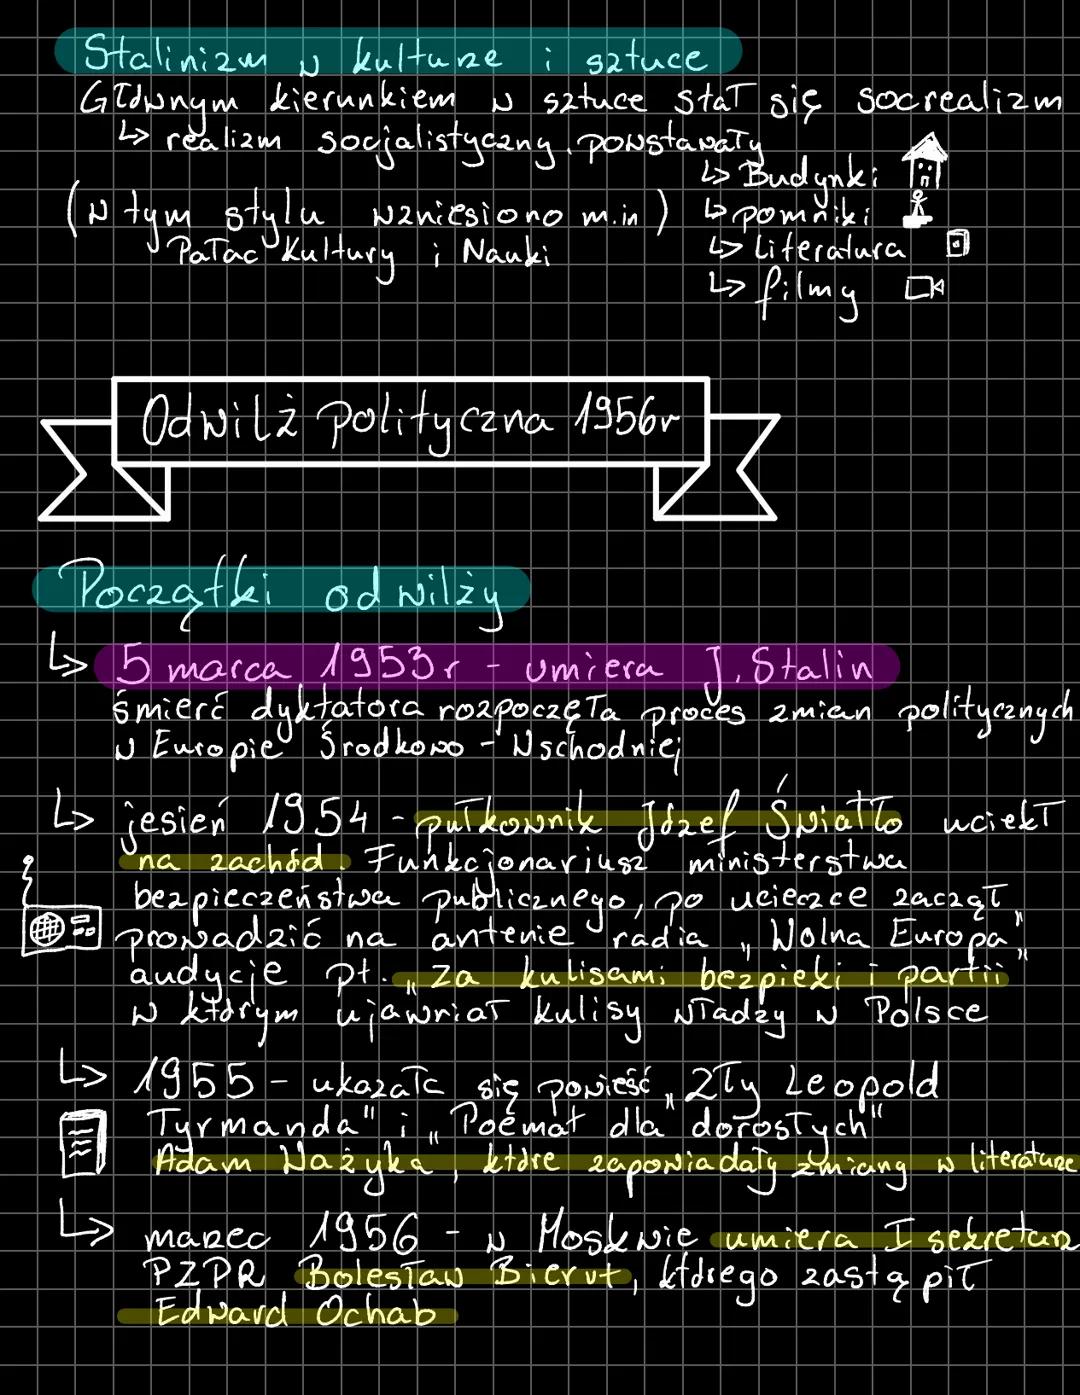 Stalinizm w kulturze i sztuce
Głównym kierunkiem w sztuce stał się socrealizm
↳ realizm socjalistyczny. powstawały
↳ Budynki
(w tym stylu wzniesiono m.in)
↳ pomniki
Pałac Kultury i Nauki
↳ Literatura
↳ filmy
Odwilż polityczna 1956r
Początki odwilży
↳ 5 marca 1953r - umiera J. Stalin
śmierć dyktatora rozpoczęła proces zmian politycznych
w Europie Środkowo - Wschodniej
↳ jesień 1954 - pułkownik Józef Światło uciekł
na zachód. Funkcjonariusz ministerstwa
bezpieczeństwa publicznego, po ucieczce zaczął
prowadzić na antenie radia "Wolna Europa"
audycje pt. „Za kulisami bezpieki i partii"
w którym ujawniał kulisy władzy w Polsce
↳ 1955 - ukazała się powieść „Zły Leopold
Tyrmanda" i „Poemat dla dorosłych"
Adam Ważyka", które zapowiadały zmianę w literaturze
↳ marzec 1956 - w Moskwie umiera I sekretarz
PZPR Bolesław Bierut, którego zastąpił
Edward Ochab